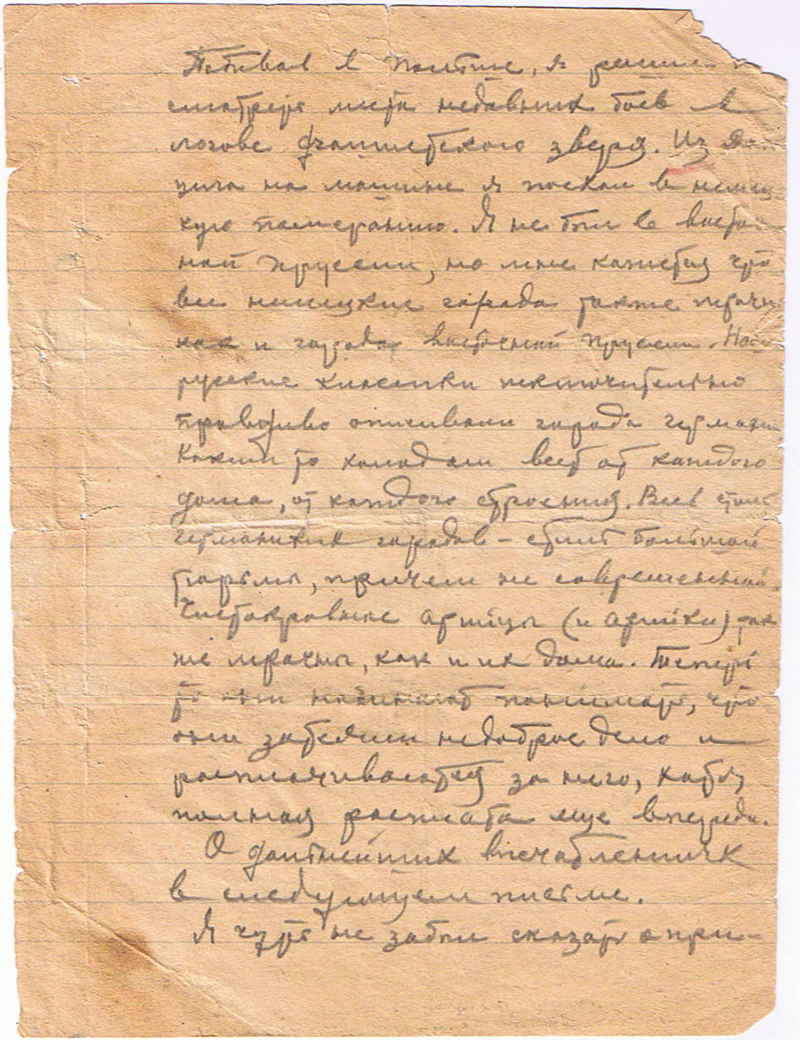 Побывав в Польше, я решил п
смотреть места недавних боев в
логове фашистского зверя. Из Дан
цига на машине я поехал в немец
кую померанию. Я не был в восточ
ной Пруссии, но мне кажется что
все немецкие города также мрачн
как и города восточной Пруссии. Наши
русские классики исключительно
правдиво описывали города германии
Каким то холодом веет от каждого
дома, от каждого строения. Весь стиль
германских городов – стиль большой
тюрьмы, причем не современной.
Чистокровные арийцы (и арийки) так
же мрачны, как и их дома. Теперь
то они начинают понимать, что
они затеяли недоброе дело и
расплачиваются за него, хотя
полная расплата еще впереди.
О дальнейших впечатлениях
в следующем письме.
Я чуть не забыл сказать о при-